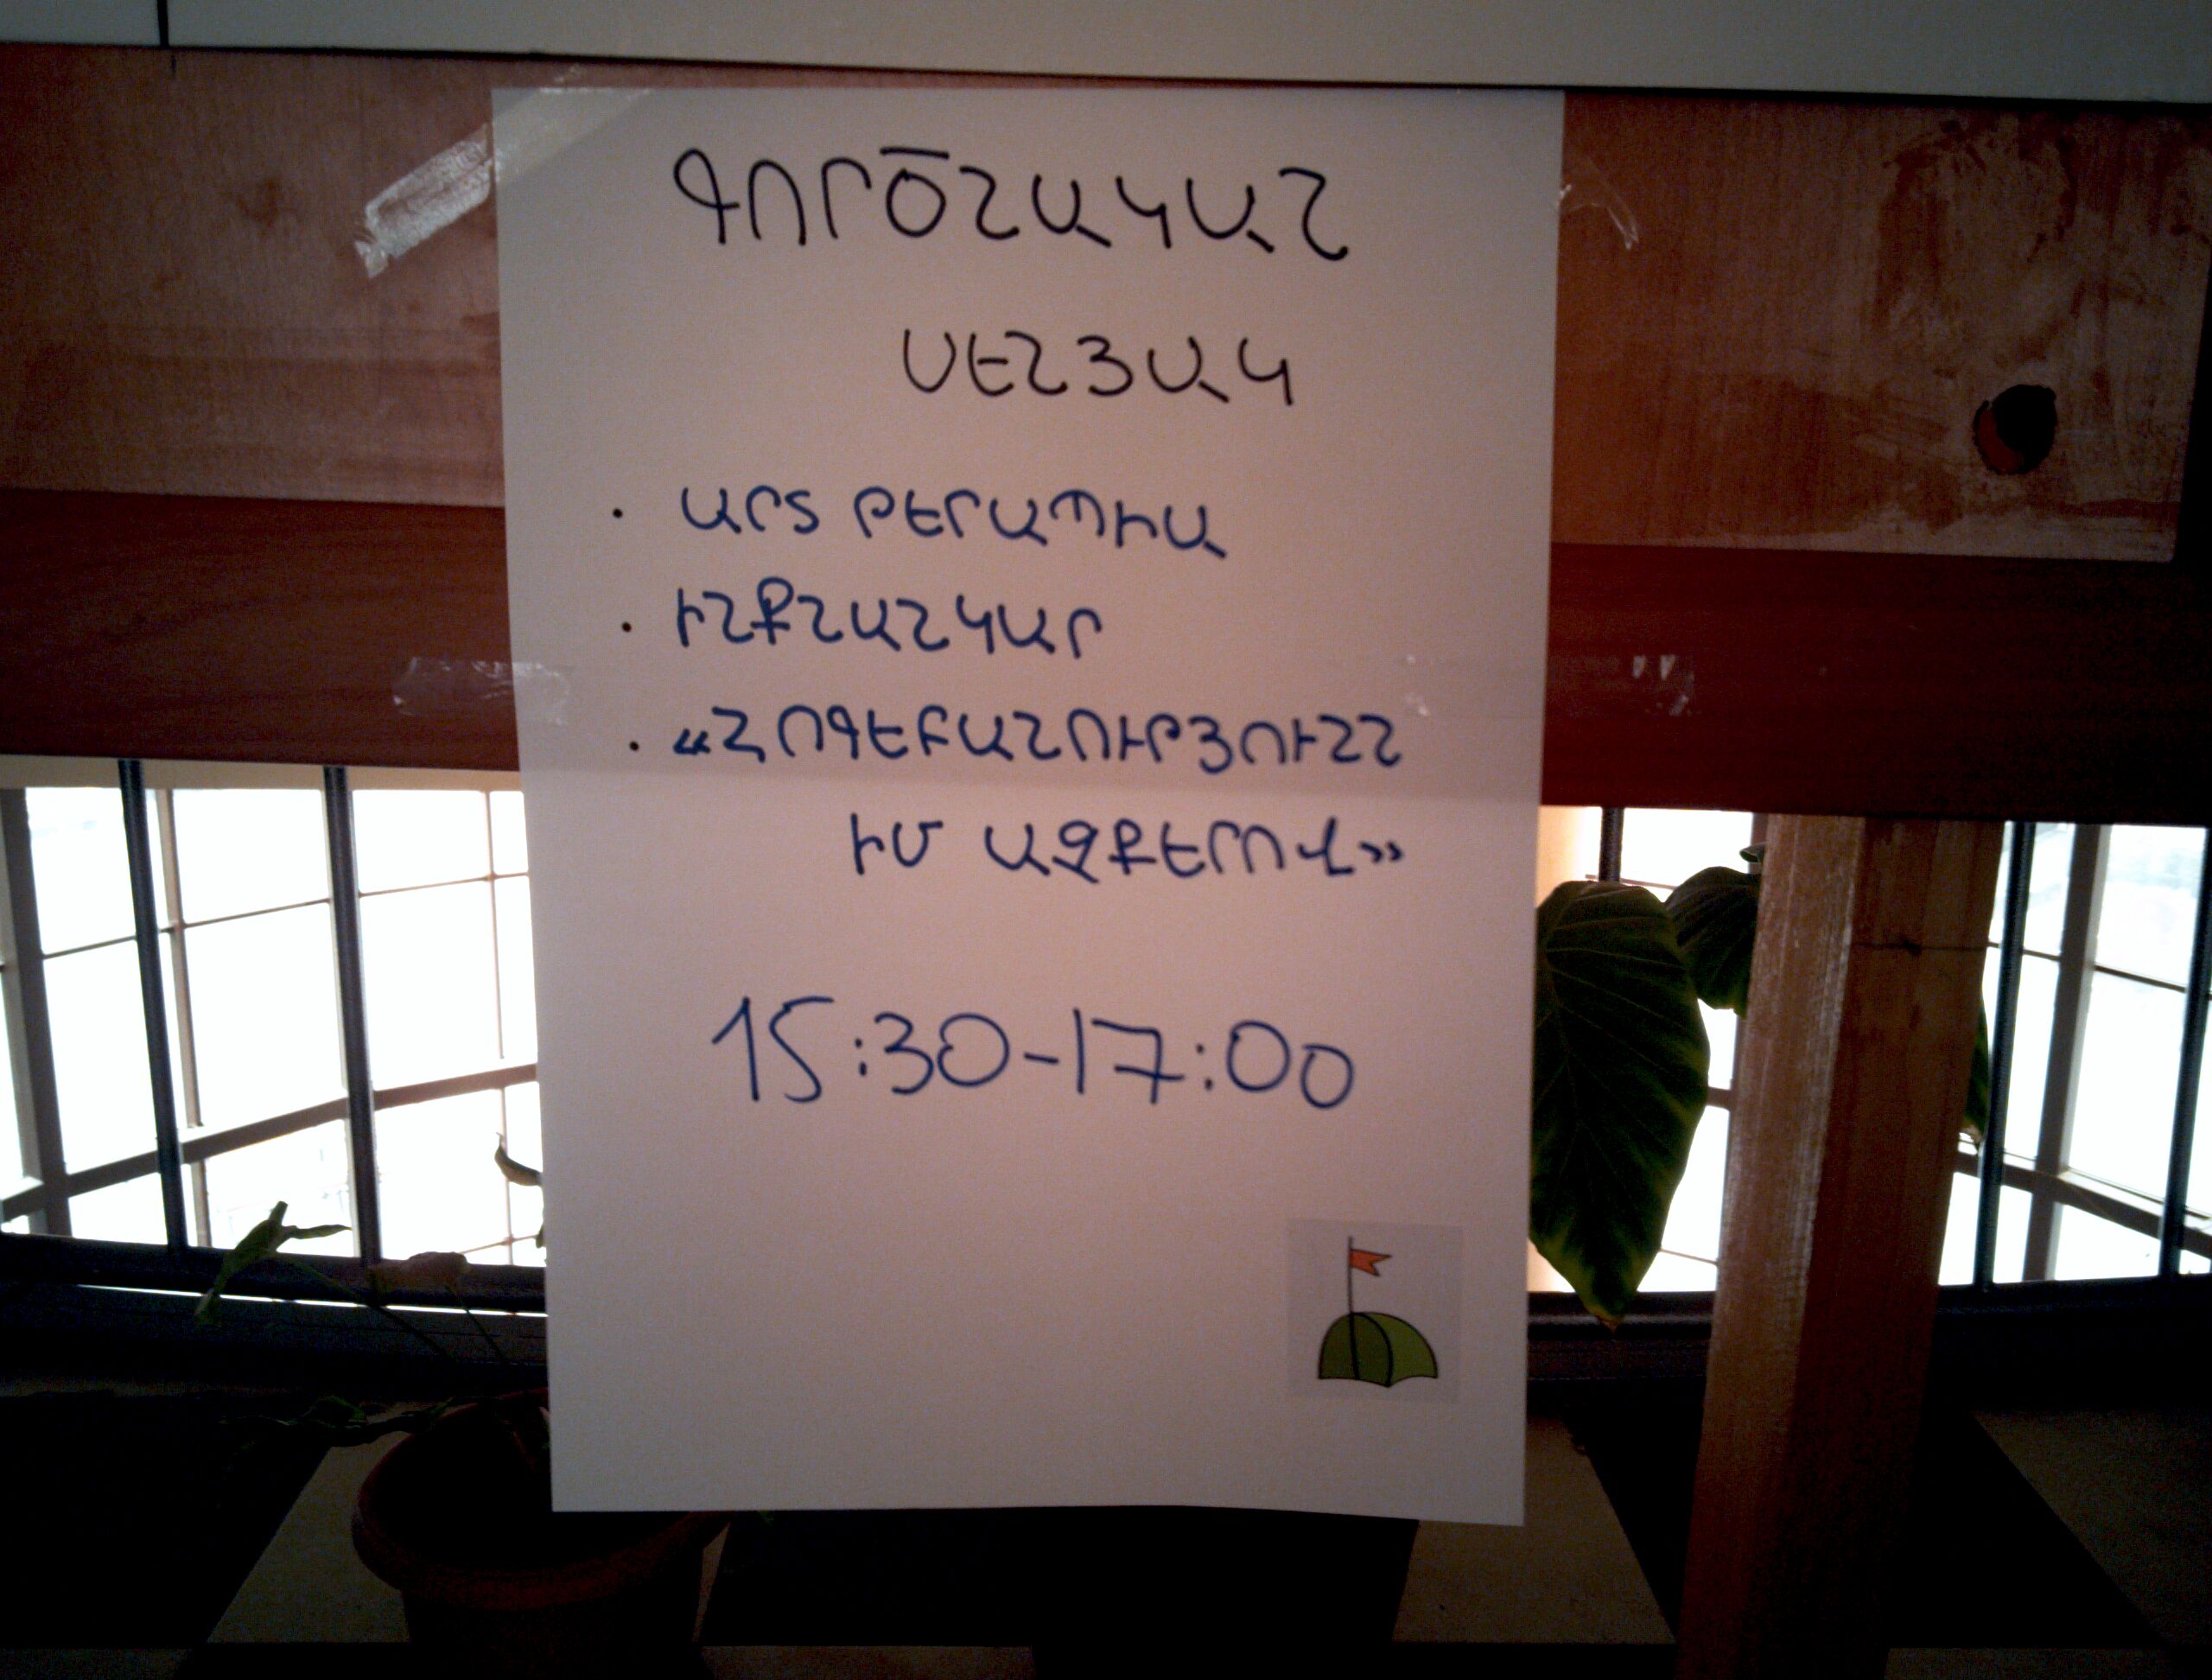 ԳՈՐԾՆԱԿԱՆ
ՍԵՆՅԱԿ
· ԱՐՏ ԹԵՐԱՊԻԱ
· ԻՆՔՆԱՆԿԱՐ
· «ՀՈԳԵԲԱՆՈՒԹՅՈՒՆՆ
ԻՄ ԱՉՔԵՐՈՎ»
15:30-17:00